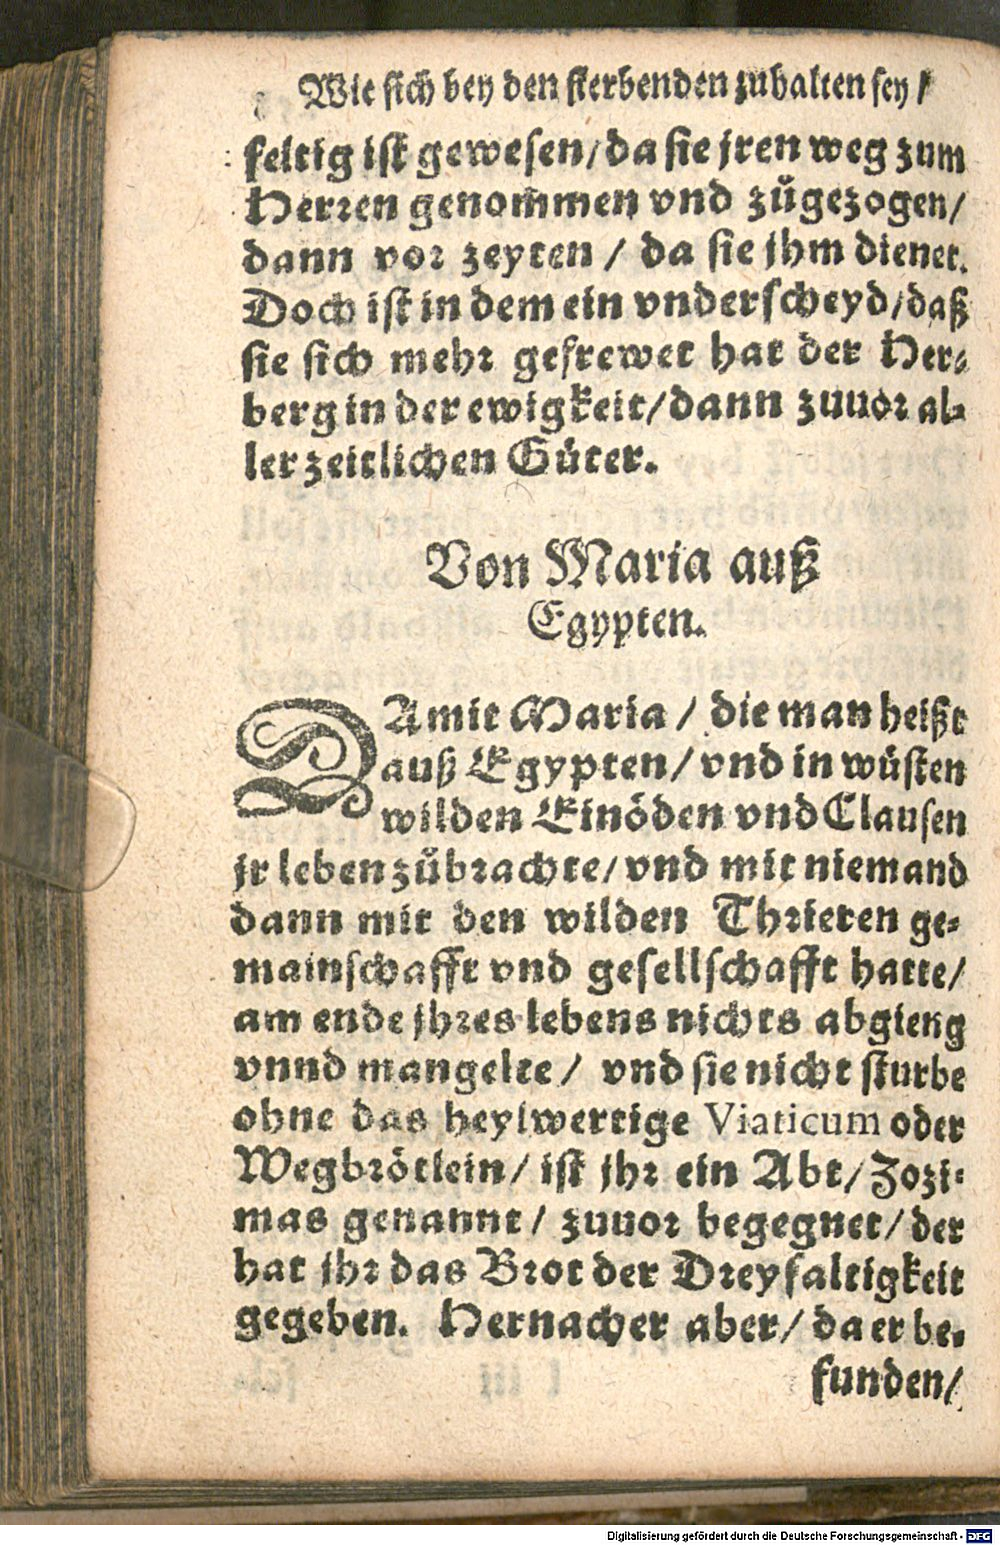 Wie sich bey den sterbenden zuhalten sey /
feltig ist gewesen/ da sie jren weg zum
Herren genom̃men vnd zůgezogen/
dann vor zeyten / da sie jhm dienet.
Doch ist in dem ein vnderscheyd/ daß
sie sich mehr gefrewet hat der Her-
berg in der ewigkeit/ dann zuuor al-
ler zeitlichen Güter.
Von Maria auß
Egypten.
DAmit Maria / die man heißt
auß Egypten/ vnd in wüsten
wilden Einöden vnd Clausen
jr leben zůbrachte/ vnd mit niemand
dann mit den wilden Thrieren ge-
mainschafft vnd gesellschafft hatte/
am ende jhres lebens nichts abgieng
vnnd mangelte / vnd sie nicht sturbe
ohne das heylwertige Viaticum oder
Wegbrötlein/ ist jhr ein Abt/ Zozi-
mas genannt / zuuor begegnet/ der
hat jhr das Brot der Dreyfaltigkeit
gegeben. Hernacher aber/ da er be-
funden/
Digitalisierung gefördert durch die Deutsche Forschungsgemeinschaft - DFG